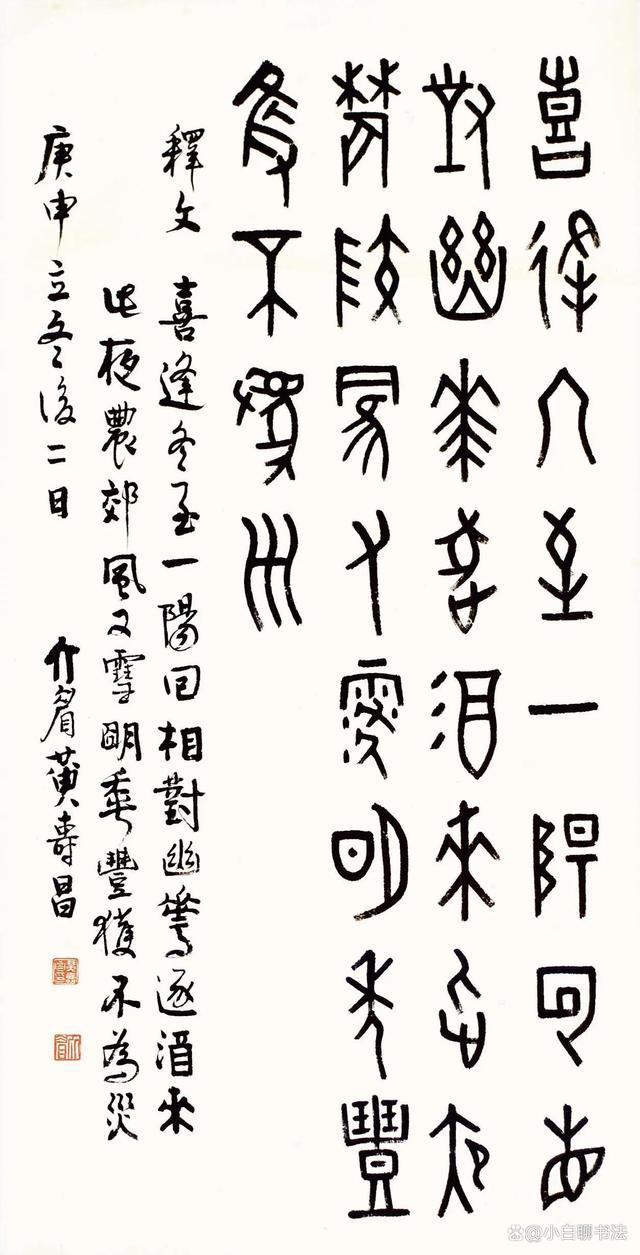 喜逢冬至一陽回相
對幽華逐來此夜
農郊風又雪明年豐
獲不為災
釋文 喜逢冬至一陽回相對幽華逐來
此夜農郊風又雪明年豐獲不為災
庚申立冬後二日 介眉黃壽昌
@小白聊书法